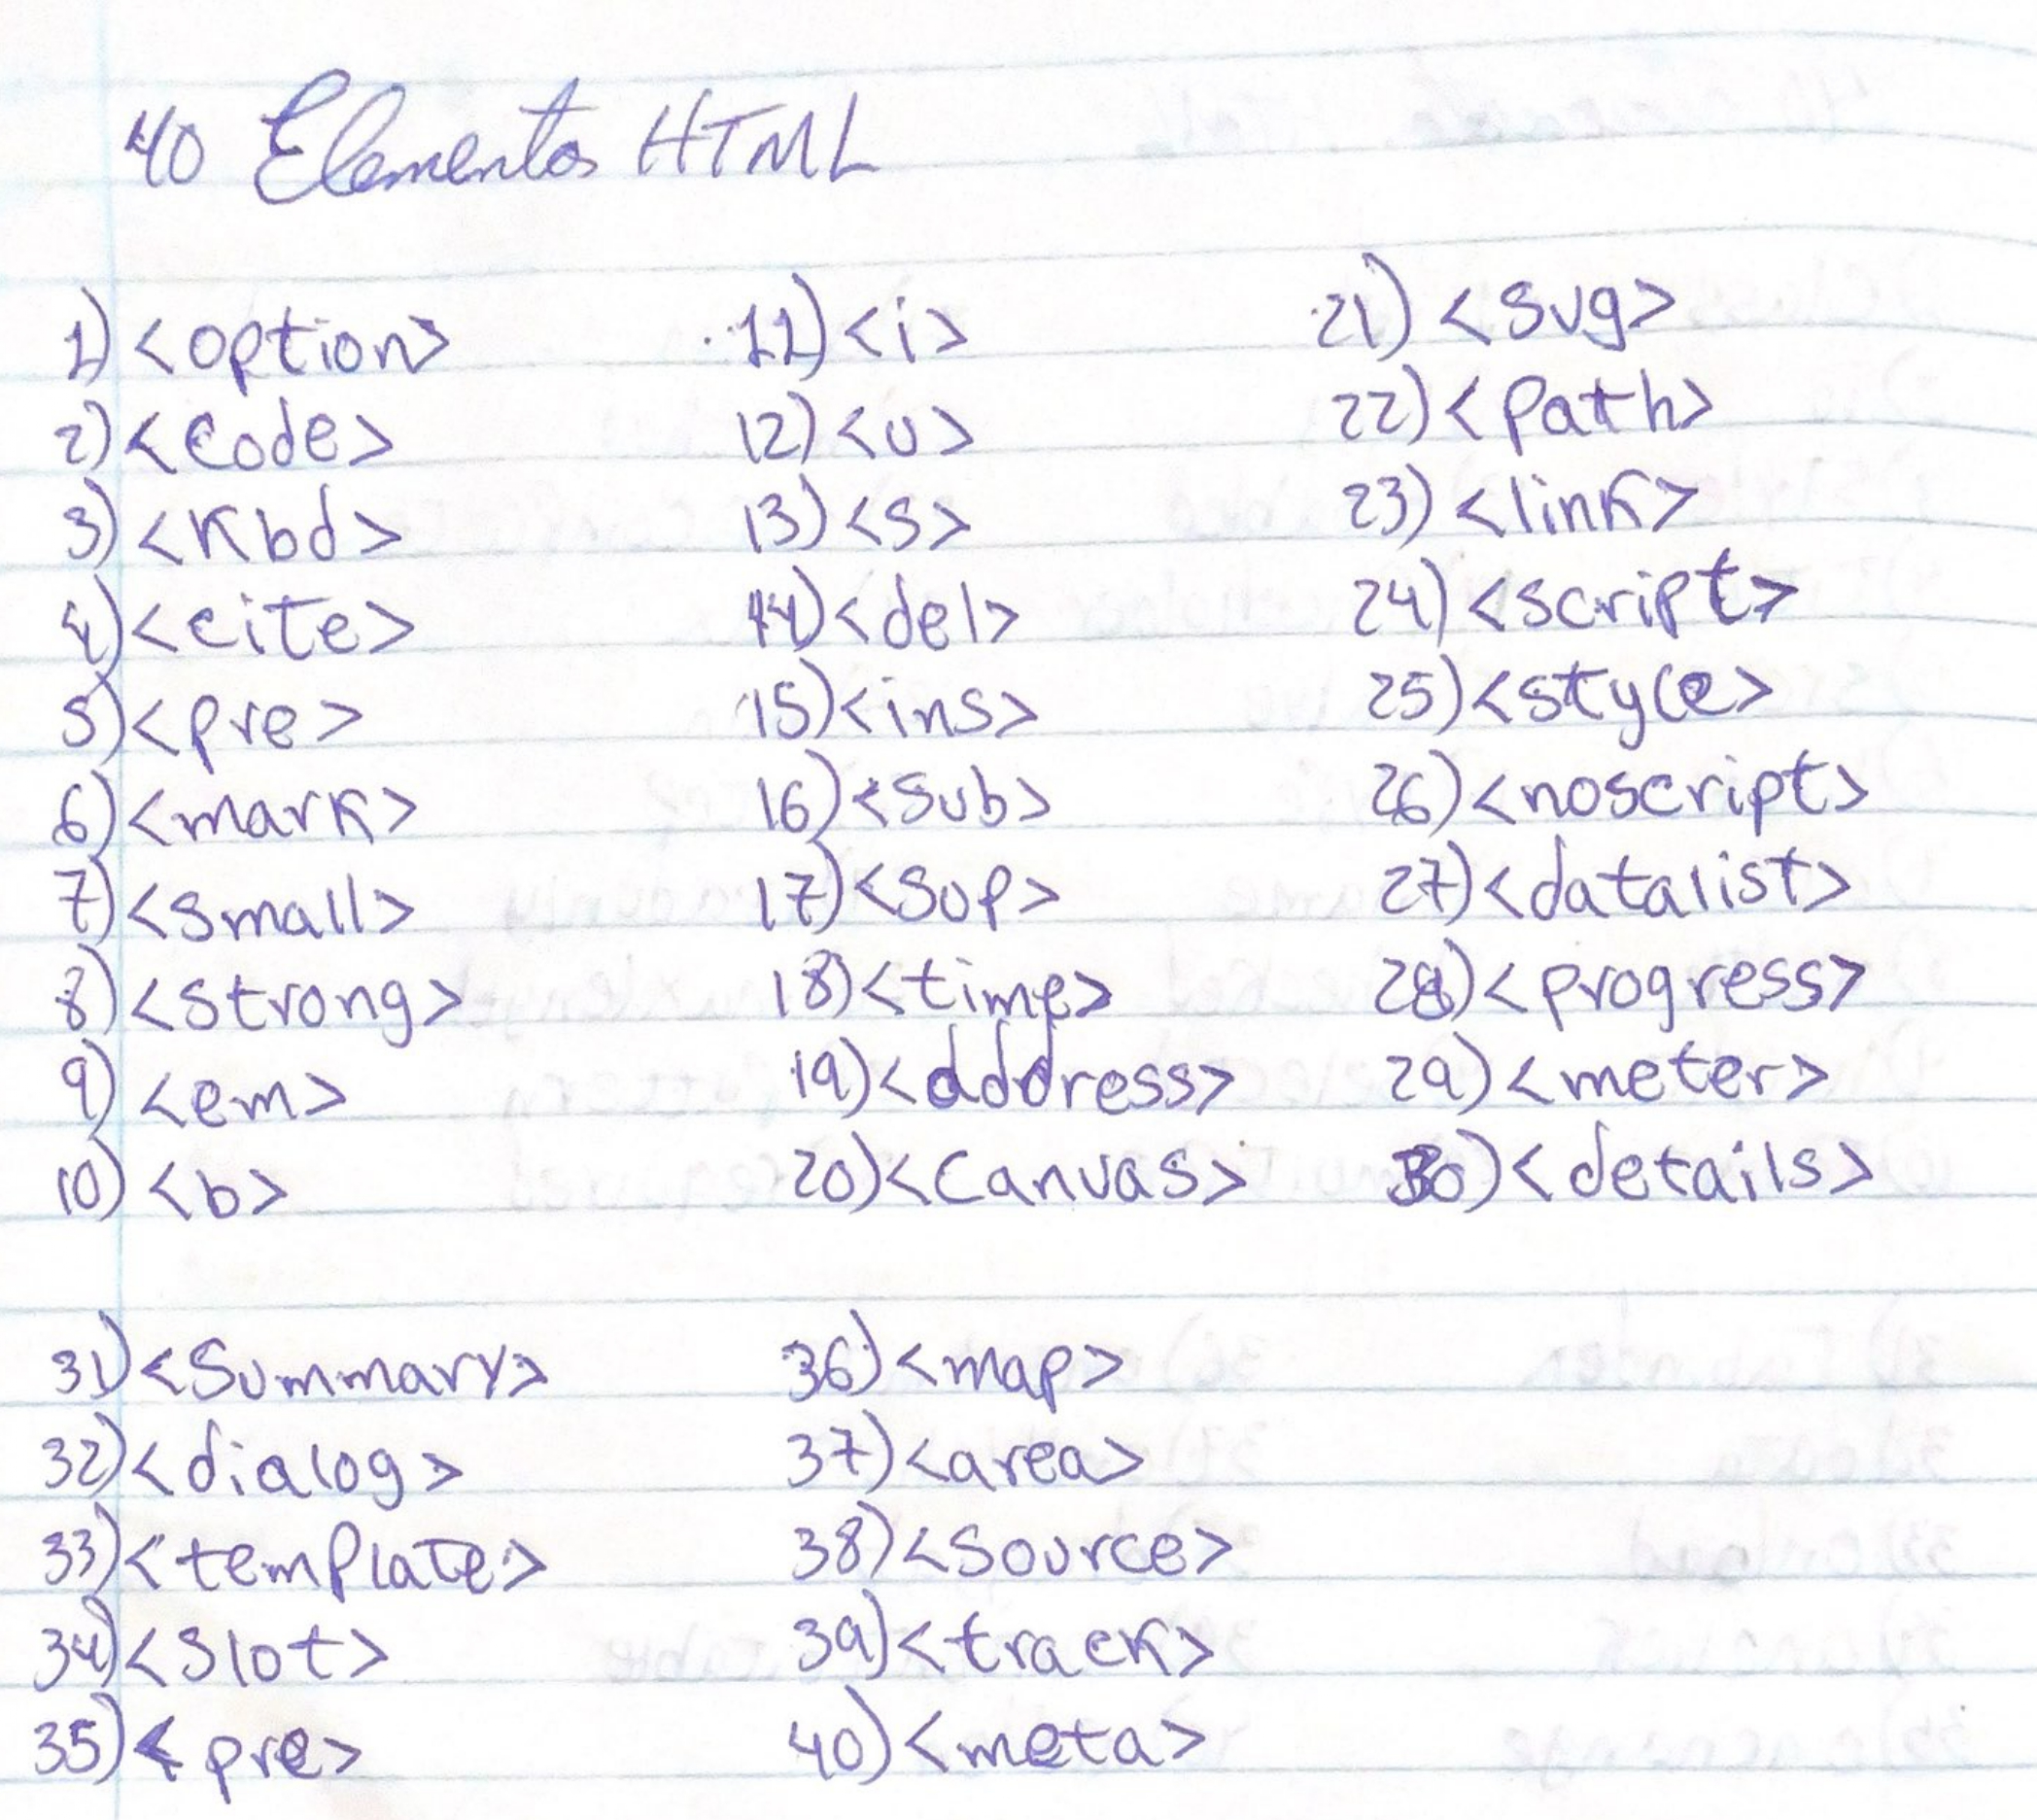 40 Elementos HTML
1) <option>
2) <code>
3) <kbd>
4) <cite>
5) <pre>
6) <mark>
7) <small>
8) <strong>
9) <em>
10) <b>
11) <i>
12) <u>
13) <s>
14) <del>
15) <ins>
16) <sub>
17) <sup>
18) <time>
19) <address>
20) <canvas>
21) <svg>
22) <path>
23) <link>
24) <script>
25) <style>
26) <noscript>
27) <datalist>
28) <progress>
29) <meter>
30) <details>
31) <summary>
32) <dialog>
33) <template>
34) <slot>
35) <pre>
36) <map>
37) <area>
38) <source>
39) <track>
40) <meta>